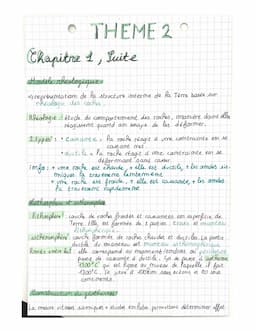 THEME 2
Chapitre 1, Suite
Modèle rhéologique
représentation de la structure interne de la Terre basée sur
rhéologie des roches.
Rhéologie: étude du comportement des roches, manière dont elles
réagissent quand on essaye de les déformer.
2 types: • cassante, la roche réagit à une contrainte en se
cassant net.
• ductile, la roche réagit à une contrainte en se
déformant sans casser.
Info: + une roche est chaude, + elle est ductile, + les ondes sis-
miques la traversent lentement
+ une roche est froide, + elle est cassante, + les ondes
la traversent rapidement
Lithosphère et asthénosphère
Lithosphère: couche de roches froides et cassantes en superficie de
Terre. Elle est formée de 2 parties: croûte et manteau
lithosphérique.
asthénosphère: couche formée de roches chaudes et ductiles. La partie
ductile du manteau est manteau asthénosphérique
elle correspond au moment/endroit où
passe de cassante à ductile. Il y a l'isotherme
1300°C qui est ligne ou fraction de laquelle il fait
1300°C. Se situe à 100km sous océans et 150 sous
continents.
Construction du géotherme
La mesure vitesses sismiques + études en labo permettent déterminer